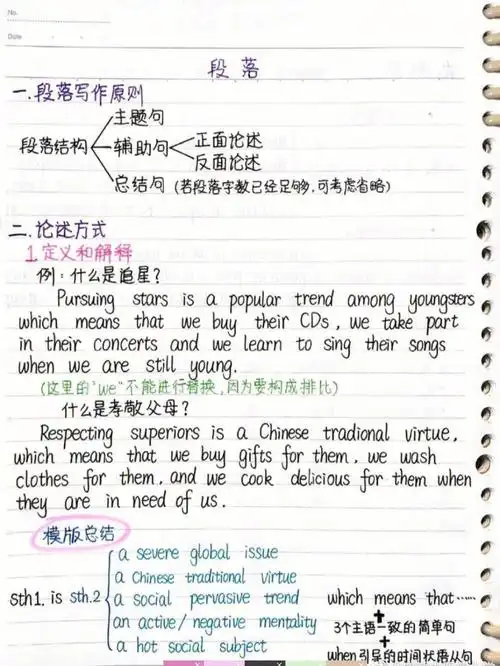 No.
Date
段落
一.段落写作原则
段落结构
主题句
辅助句
正面论述
反面论述
总结句 (若段落字数已经足够,可考虑省略)
二.论述方式
1.定义和解释
例:什么是追星?
Pursuing stars is a popular trend among youngsters
which means that we buy their CDs, we take part
in their concerts and we learn to sing their songs
when we are still young.
(这里的"we"不能进行替换,因为要构成排比)
什么是孝敬父母?
Respecting superiors is a Chinese tradional virtue,
which means that we buy gifts for them, we wash
clothes for them, and we cook delicious for them when
they are in need of us.
模版总结
sth1. is sth.2
a severe global issue
a Chinese traditional virtue
a social pervasive trend
an active/negative mentality
a hot social subject
which means that……
+
3个主语一致的简单句
+
when引导的时间状语从句